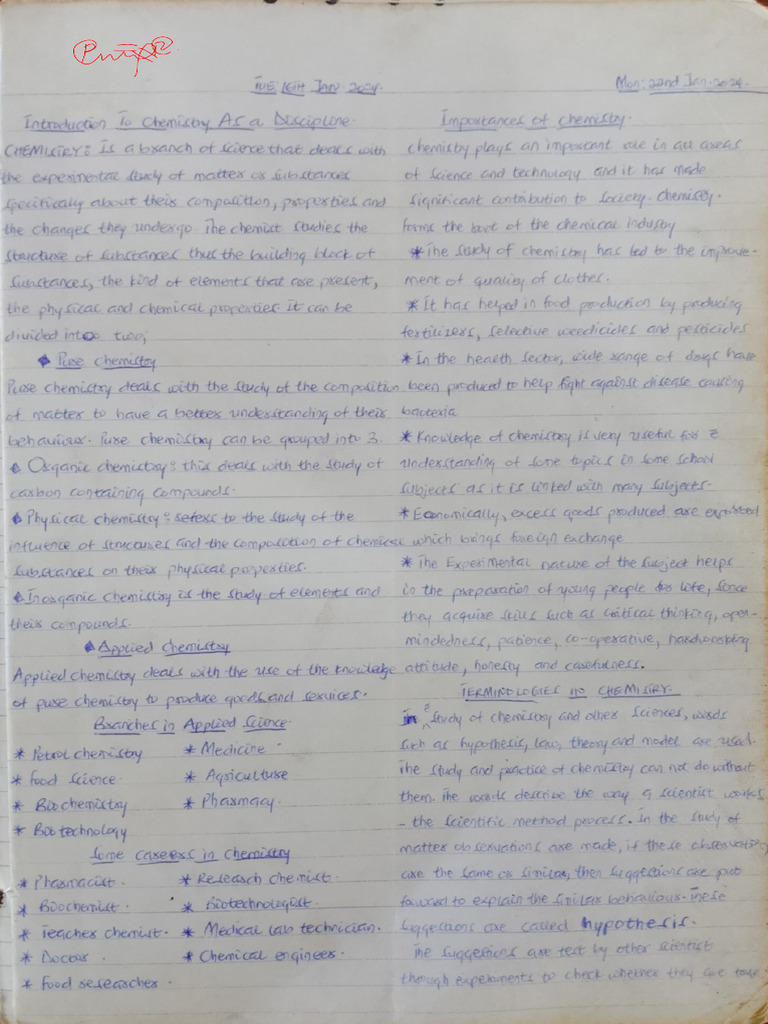 TUE 16TH Jan 2024.
Introduction To Chemistry As a Discipline.
CHEMISTRY: Is a branch of science that deals with
the experimental study of matter or substances
specifically about their composition, properties and
the changes they undergo. The chemist studies the
structure of substances thus the building block of
substances, the kind of elements that are present,
the physical and chemical properties It can be
divided into two;
Pure chemistry
Pure chemistry deals with the study of the composition
of matter to have a better understanding of their
behaviour. Pure chemistry can be grouped into 3.
Organic chemistry: this deals with the study of
carbon containing compounds.
Physical chemistry: refers to the study of the
influence of structures and the composition of chemical
substances on their physical properties.
Inorganic chemistry is the study of elements and
their compounds.
Applied Chemistry
Applied chemistry deals with the use of the knowledge
of pure chemistry to produce goods and services.
Branches in Applied Science.
* Petrol chemistry * Medicine
* Food science. * Agriculture
* Biochemistry * Pharmacy.
* Biotechnology
Some careers in Chemistry
* Pharmacist. * Research chemist.
* Biochemist. * Biotechnologist.
* Teacher chemist. * Medical lab technician.
* Doctor. * Chemical engineer.
* Food researcher.
Mon: 22nd Jan. 2024.
Importances of chemistry.
chemistry plays an important role in all areas
of science and technology and it has made
significant contribution to society. chemistry.
forms the root of the chemical industry
* The study of chemistry has led to the improve-
ment of quality of clothes.
* It has helped in food production by producing
fertilizers, selective weedicides and pesticides
* In the health sector, wide range of drugs have
been produced to help fight against disease causing
bacteria
* Knowledge of chemistry is very useful for
understanding of some topics in some school
subjects as it is linked with many subjects.
* Economically, excess goods produced are exported
which brings foreign exchange
* The Experimental nature of the subject helps
in the preparation of young people for life, since
they acquire skills such as critical thinking, open-
mindedness, patience, co-operative, hardworking
attitude, honesty and carefulness.
TERMINOLOGIES IN CHEMISTRY.
In study of chemistry and other sciences, words
such as hypothesis, law, theory and model are used.
The study and practice of chemistry can not do without
them. The words describe the way a scientist works
- the scientific method process. In the study of
matter observations are made, if these observations
are the same or similar, then suggestions are put
forward to explain the similar behaviour. These
suggestions are called hypothesis.
The suggestions are test by other scientist
through experiments to check whether they are true